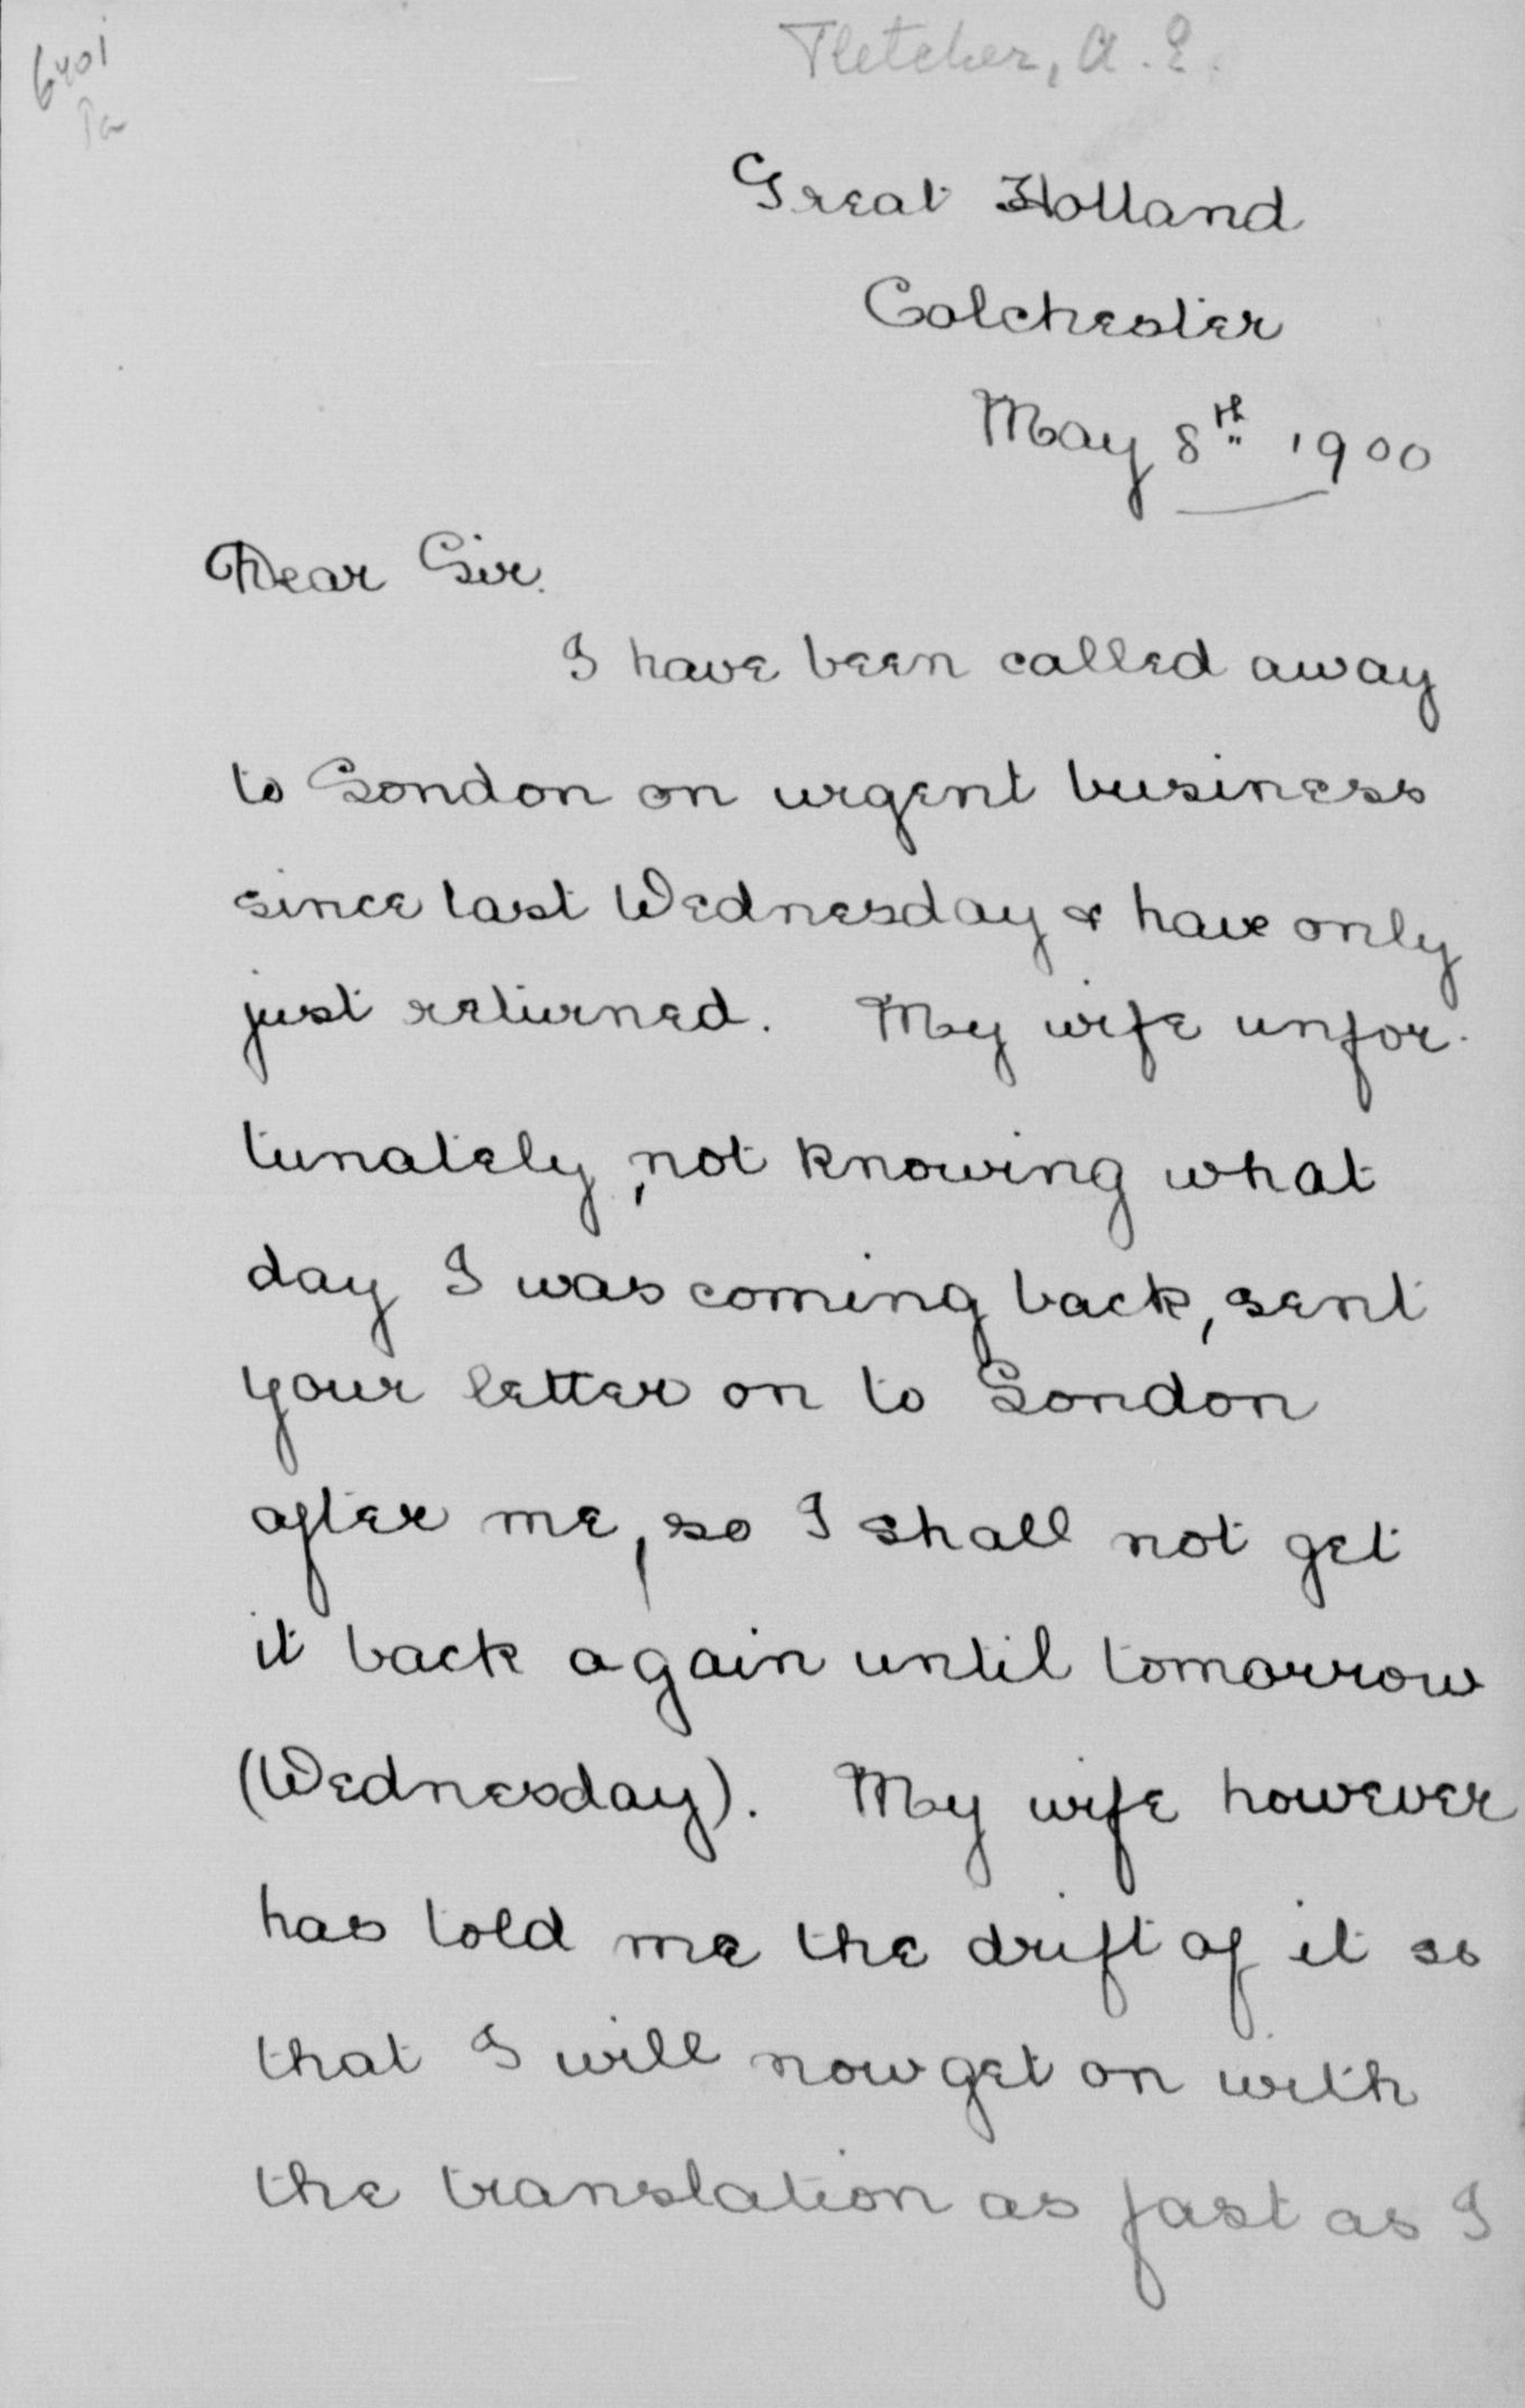 Fletcher, A. E.
Great Holland
Colchester
May 8th 1900
Dear Sir.
I have been called away
to London on urgent business
since last Wednesday & have only
just returned. My wife unfor-
tunately, not knowing what
day I was coming back, sent
your letter on to London
after me, so I shall not get
it back again until tomorrow
(Wednesday). My wife however
has told me the drift of it so
that I will now get on with
the translation as fast as I